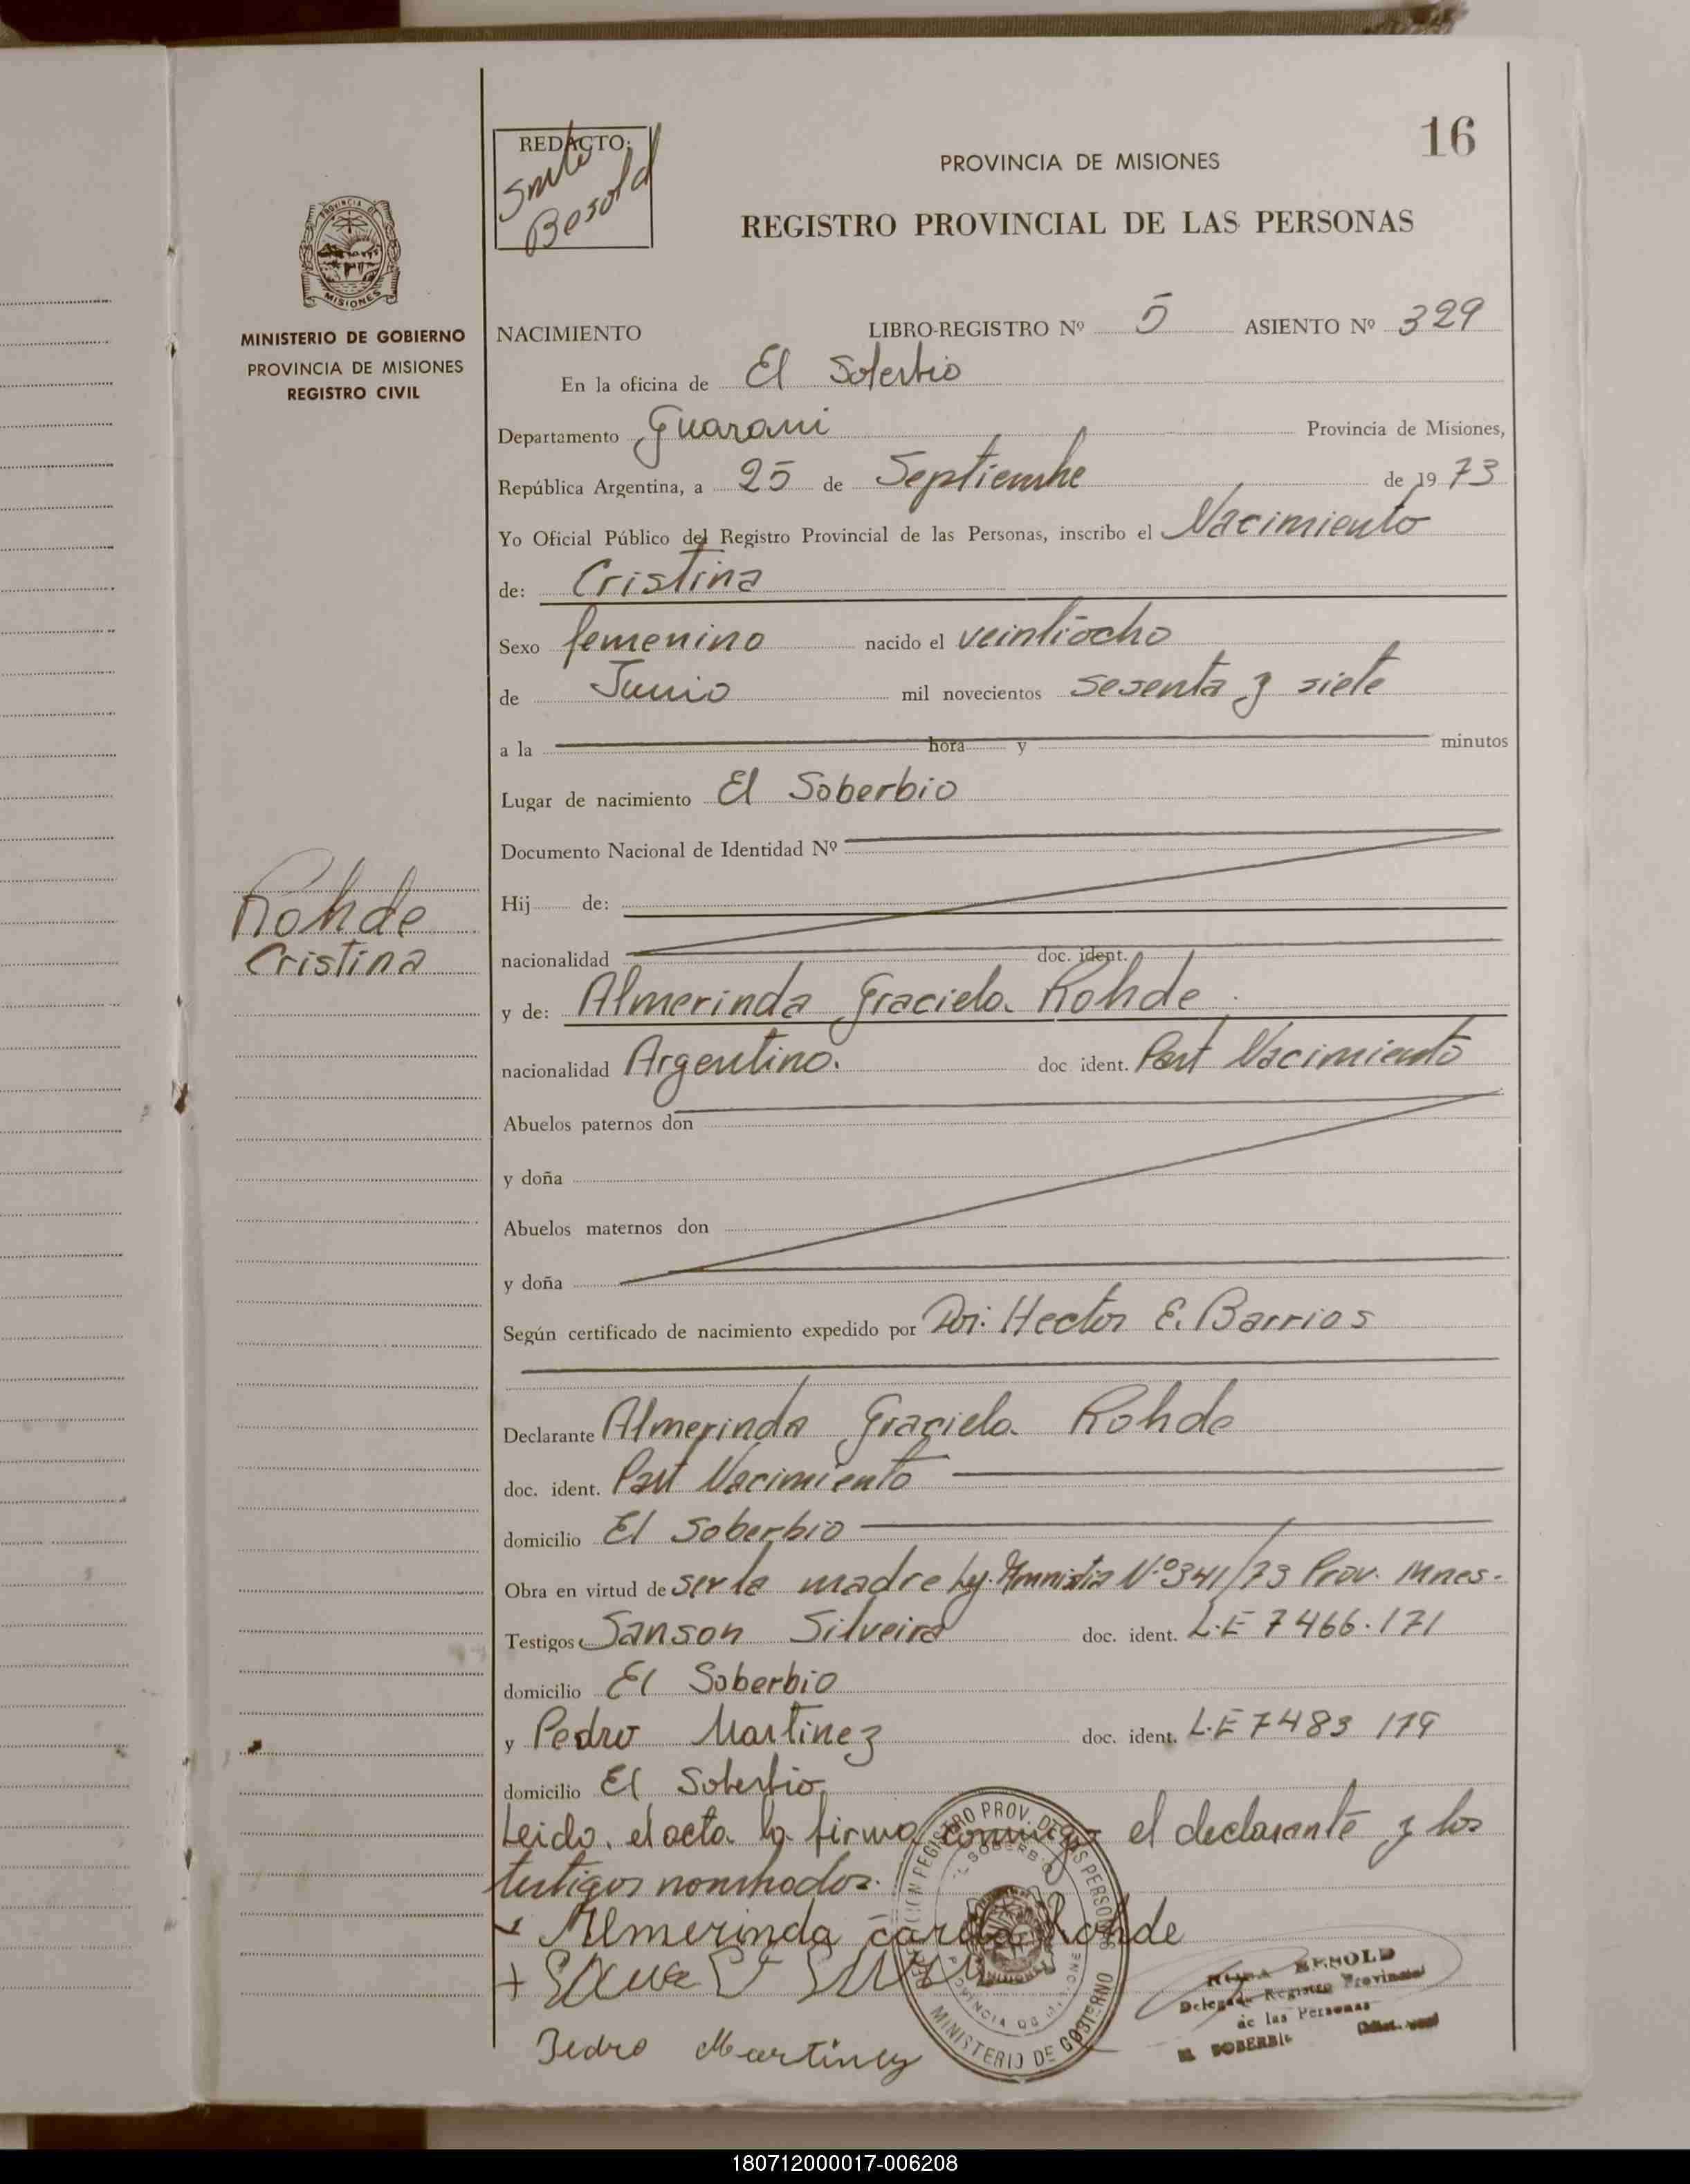 16
REDACTO:
Besold
PROVINCIA DE MISIONES
REGISTRO PROVINCIAL DE LAS PERSONAS
PROVINCIA DE
MISIONES
MINISTERIO DE GOBIERNO
PROVINCIA DE MISIONES
REGISTRO CIVIL
NACIMIENTO LIBRO-REGISTRO Nº 5 ASIENTO Nº 329
En la oficina de El Soberbio
Departamento Guarani Provincia de Misiones,
República Argentina, a 25 de Septiembre de 1973
Yo Oficial Público del Registro Provincial de las Personas, inscribo el Nacimiento
de: Cristina
Sexo femenino nacido el veintiocho
de Junio mil novecientos sesenta y siete
a la hora y minutos
Lugar de nacimiento El Soberbio
Documento Nacional de Identidad Nº
Hij de:
Rohde
Cristina
nacionalidad doc. ident.
y de: Almerinda Graciela Rohde
nacionalidad Argentino. doc ident. Part Nacimiento
Abuelos paternos don
y doña
Abuelos maternos don
y doña
Según certificado de nacimiento expedido por Dr: Hector E. Barrios
Declarante Almerinda Graciela Rohde
doc. ident. Part Nacimiento
domicilio El Soberbio
Obra en virtud de ser la madre Ley. Amnistia Nº 341/73 Prov. Mnes.
Testigos Sanson Silveira doc. ident. L.E 7466.171
domicilio El Soberbio
y Pedro Martinez doc. ident. L.E 7483 179
domicilio El Soberbio
Leido, el acta la firma conmigo el declarante y los
testigos nombrados.
Almerinda Rohde
Pedro Martinez
REGISTRO PROV. DE LAS PERSONAS
EL SOBERBIO
PROVINCIA DE MISIONES
MINISTERIO DE GOBIERNO
BESOLD
Delegada Registro Provincial
de las Personas
EL SOBERBIO
180712000017-006208